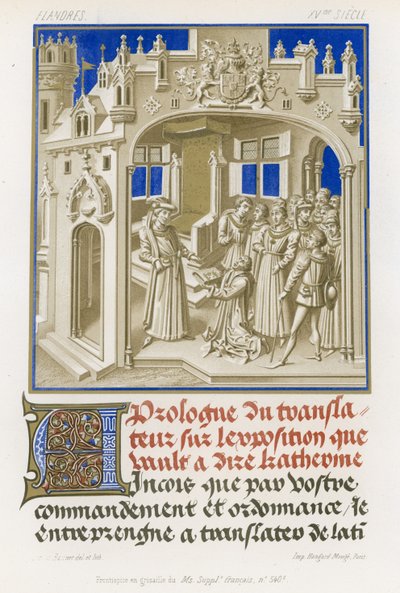 FLANDRES.
XVme SIÈCLE
Prologue du transla=
teur sur lexposition que
vault a dire katherine
Aincois que par vostre
commandement et ordonnance / Je
entreprengne a translater de lati
del et lith
Imp. Hangard-Maugé, Paris
Frontispice en grisaille du Ms. Supplt français, n° 540⁸